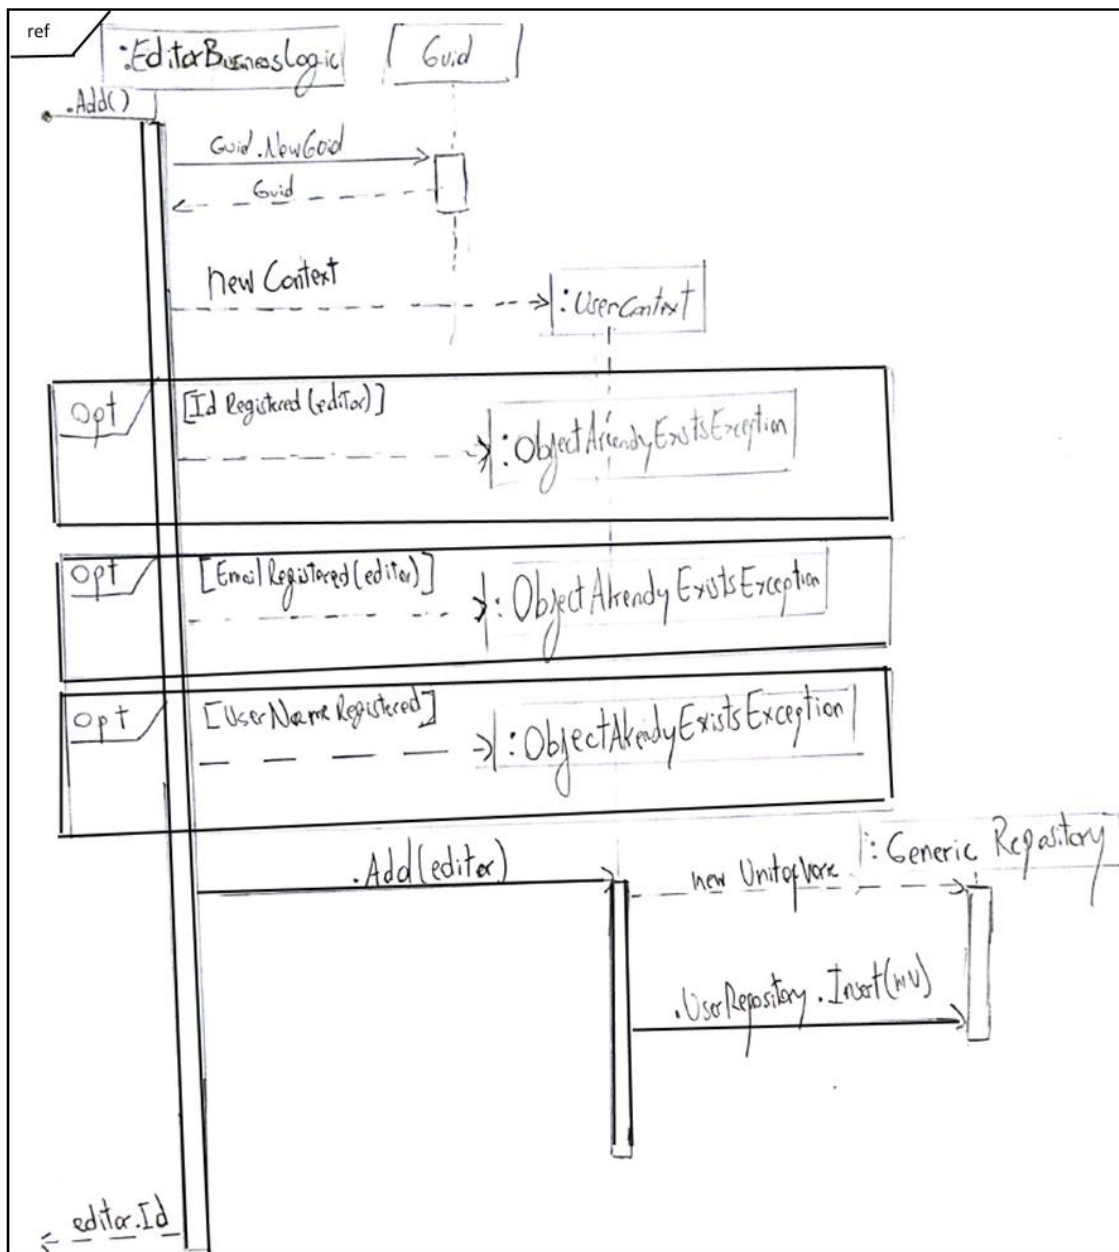 ref
:EditorBusinessLogic
Guid
.Add()
Guid.NewGuid
Guid
new Context
:UserContext
Opt
[Id Registered(editor)]
:ObjectAlreadyExistsException
Opt
[EmailRegistered(editor)]
:ObjectAlreadyExistsException
Opt
[UserNameRegistered]
:ObjectAlreadyExistsException
:Generic Repository
.Add(editor)
new UnitofWork
.UserRepository.Insert(mU)
editor.Id